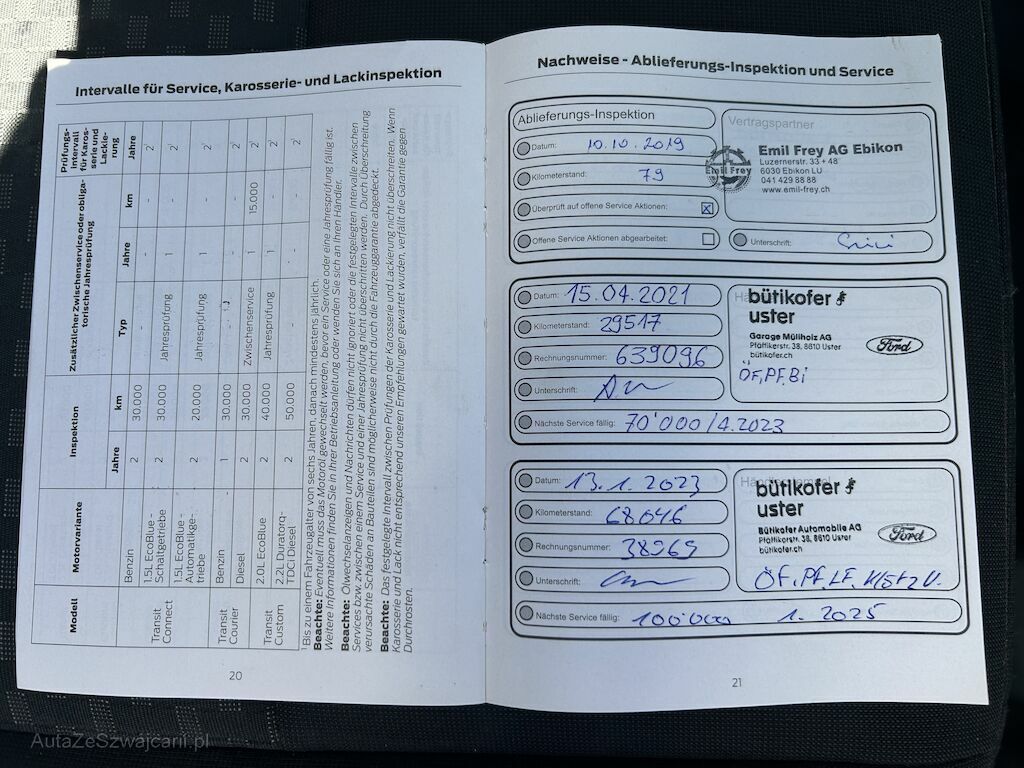 Intervalle für Service, Karosserie- und Lackinspektion
Modell
Motorvariante
Inspektion
Zusätzlicher Zwischenservice oder obligatorische Jahresprüfung
Prüfungs-Intervall für Karosserie und Lackierung
Jahre km Typ Jahre km Jahre
Transit Connect Benzin 2 30.000 - - - 2¹
1.5L EcoBlue - Schaltgetriebe 2 30.000 Jahresprüfung 1 - 2¹
1.5L EcoBlue - Automatikgetriebe 2 20.000 Jahresprüfung 1 - 2¹
Transit Courier Benzin 1 30.000 - - - 2¹
Diesel 2 30.000 Zwischenservice 1 15.000 2¹
Transit Custom 2.0L EcoBlue 2 40.000 Jahresprüfung 1 - 2¹
2.2L Duratorq-TDCi Diesel 2 50.000 - - - 2¹
¹ Bis zu einem Fahrzeugalter von sechs Jahren, danach mindestens jährlich.
Beachte: Eventuell muss das Motoröl gewechselt werden, bevor ein Service oder eine Jahresprüfung fällig ist.
Weitere Informationen finden Sie in Ihrer Betriebsanleitung oder wenden Sie sich an Ihren Händler.
Beachte: Ölwechselanzeigen und Nachrichten dürfen nicht ignoriert oder die festgelegten Intervalle zwischen
Services bzw. zwischen einem Service und einer Jahresprüfung nicht überschritten werden. Durch Überschreitung
verursachte Schäden an Bauteilen sind möglicherweise nicht durch die Fahrzeuggarantie abgedeckt.
Beachte: Das festgelegte Intervall zwischen Prüfungen der Karosserie und Lackierung nicht überschreiten. Wenn
Karosserie und Lack nicht entsprechend unseren Empfehlungen gewartet wurden, verfällt die Garantie gegen
Durchrosten.
20
Nachweise - Ablieferungs-Inspektion und Service
Ablieferungs-Inspektion
Datum: 10.10.2019
Kilometerstand: 79
Überprüft auf offene Service Aktionen: ☒
Offene Service Aktionen abgearbeitet: ☐
Vertragspartner
Emil Frey
Emil Frey AG Ebikon
Luzernerstr. 33 + 48
6030 Ebikon LU
041 429 88 88
www.emil-frey.ch
Unterschrift:
Datum: 15.04.2021
Kilometerstand: 29517
Rechnungsnummer: 639096
Unterschrift:
Nächste Service fällig: 70'000/4.2023
bütikofer
uster
Garage Müliholz AG
Pfäffikerstr. 38, 8610 Uster
bütikofer.ch
Ford
ÖF, PF, Bi
Datum: 13.1.2023
Kilometerstand: 68046
Rechnungsnummer: 38969
Unterschrift:
Nächste Service fällig: 100'000 1.2025
bütikofer
uster
Bütikofer Automobile AG
Pfäffikerstr. 38, 8610 Uster
bütikofer.ch
Ford
ÖF, PF, LF,
21
AutaZeSzwajcarii.pl